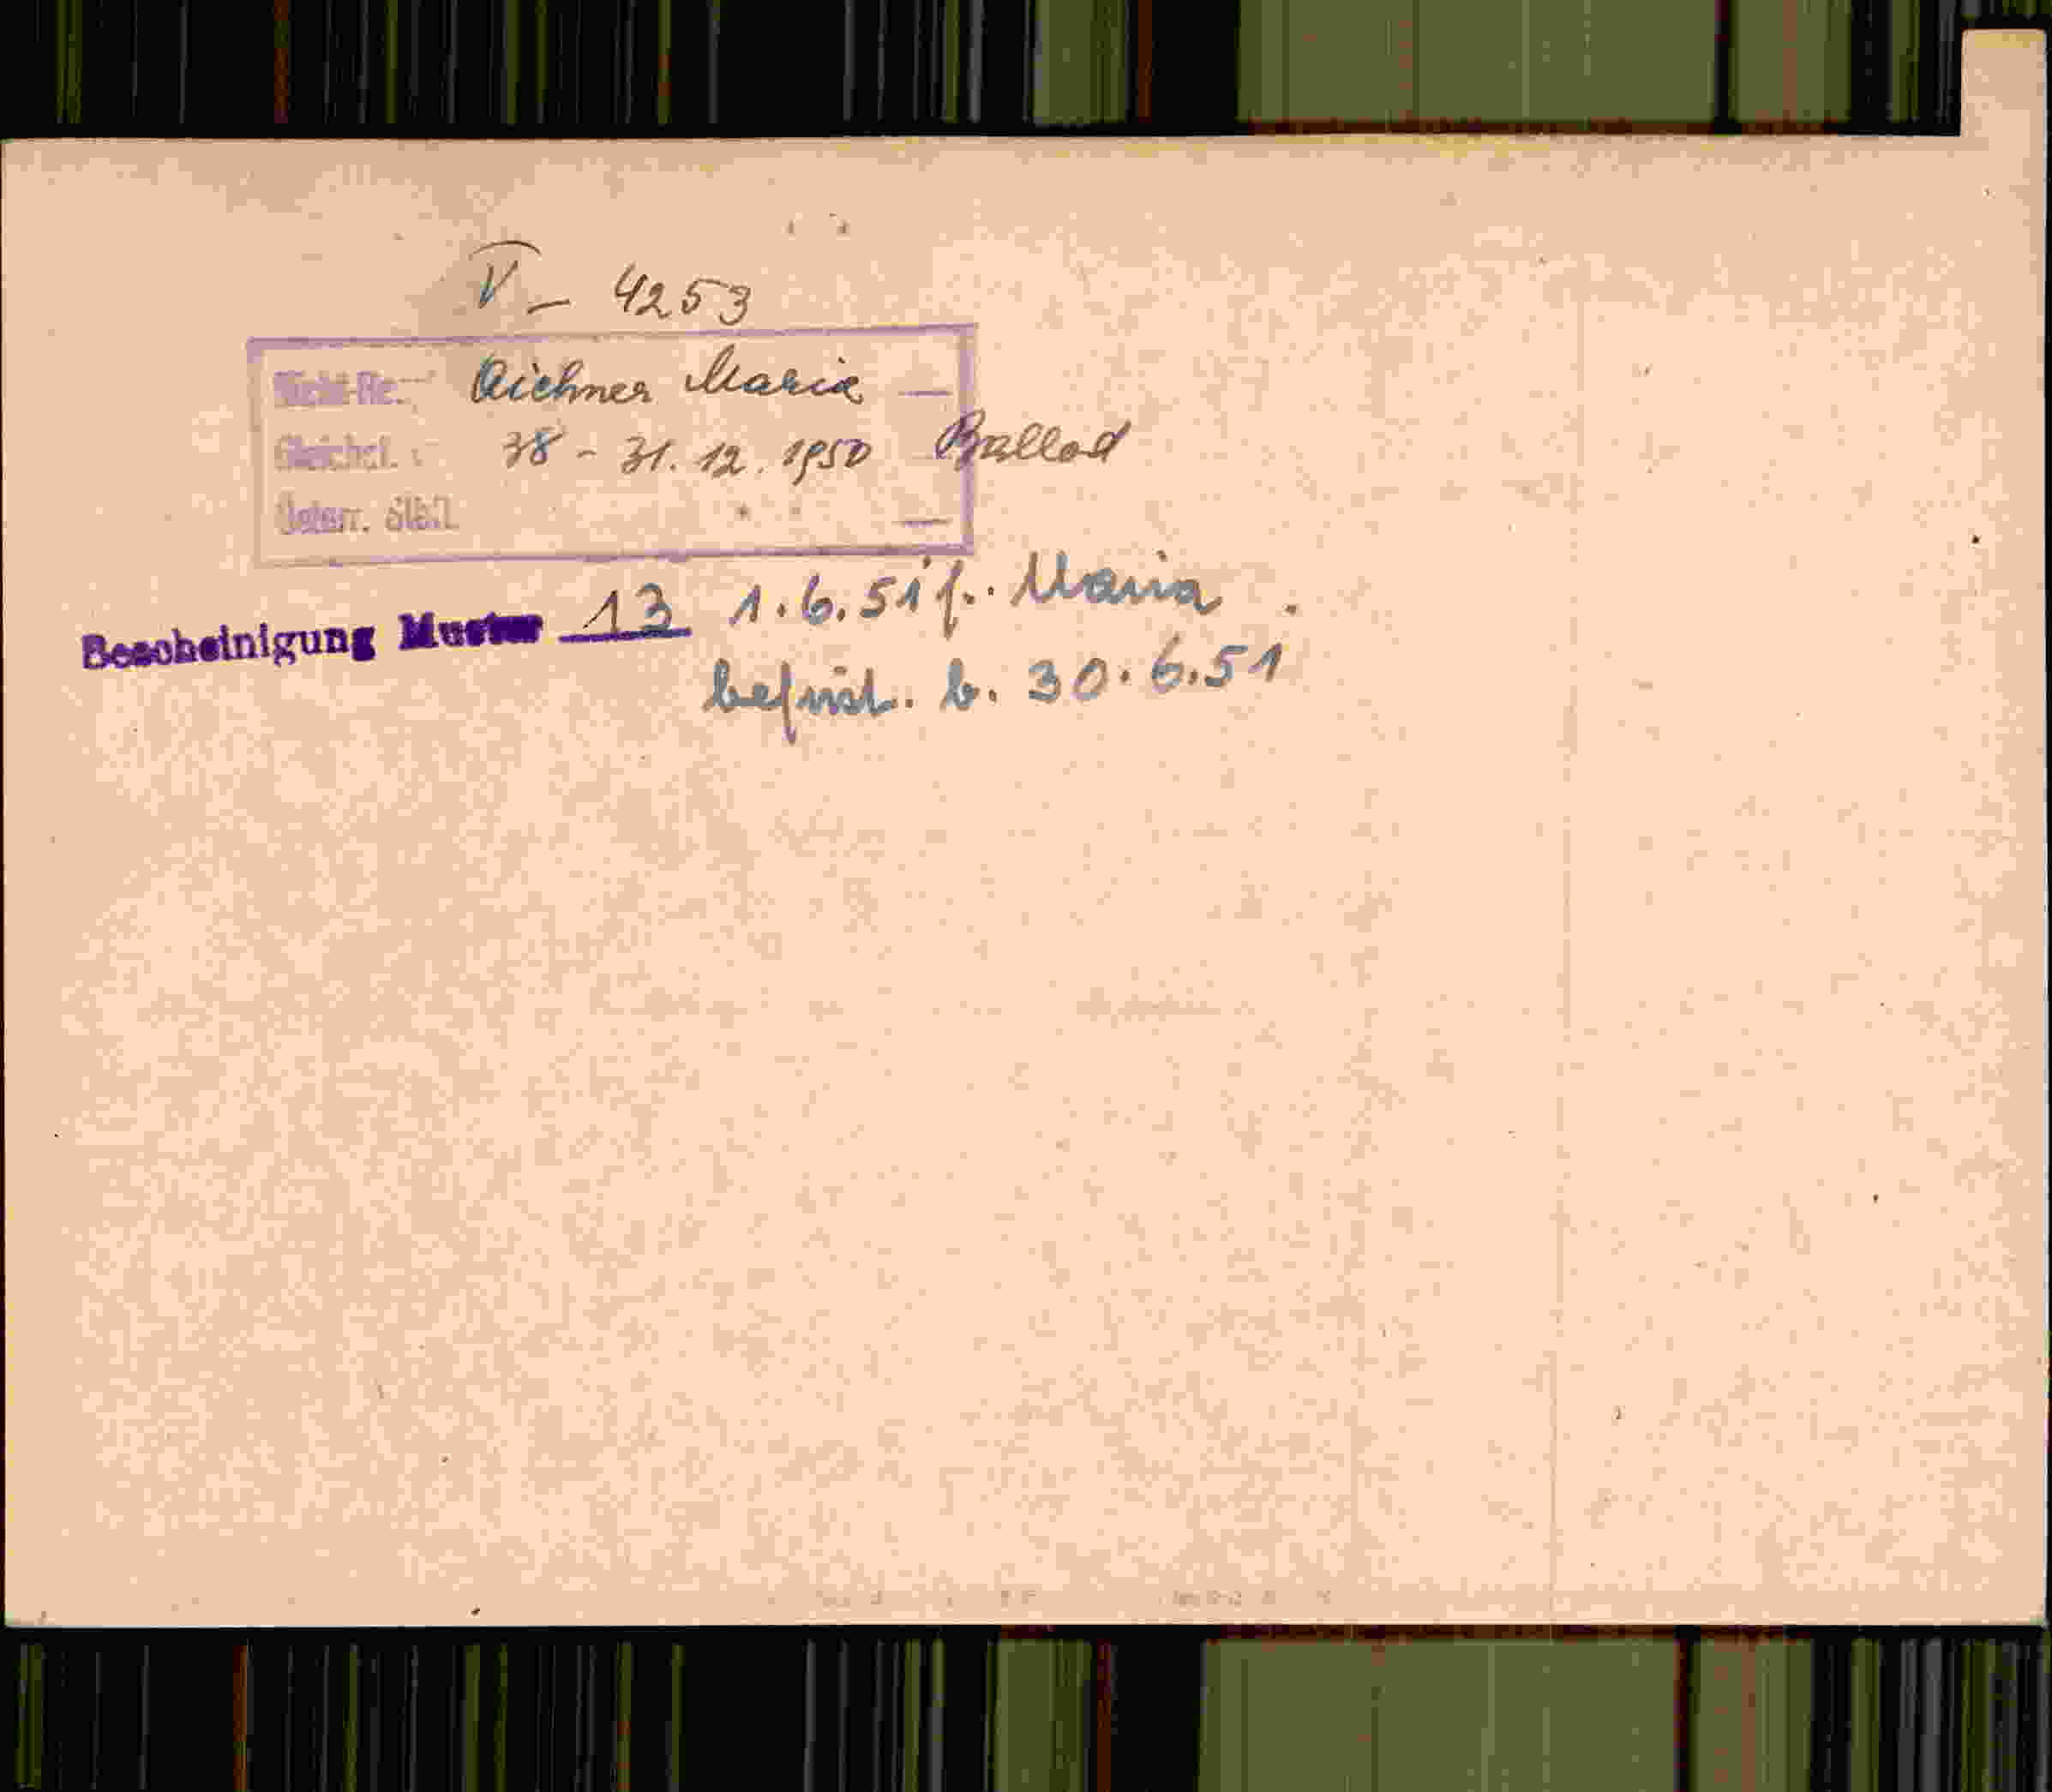 V - 4253
Aichner Maria
38 - 31. 12. 1950 Ballod
Österr. StB.
Bescheinigung Muster 13 1.6.51 f. Maria
befrist. b. 30.6.51